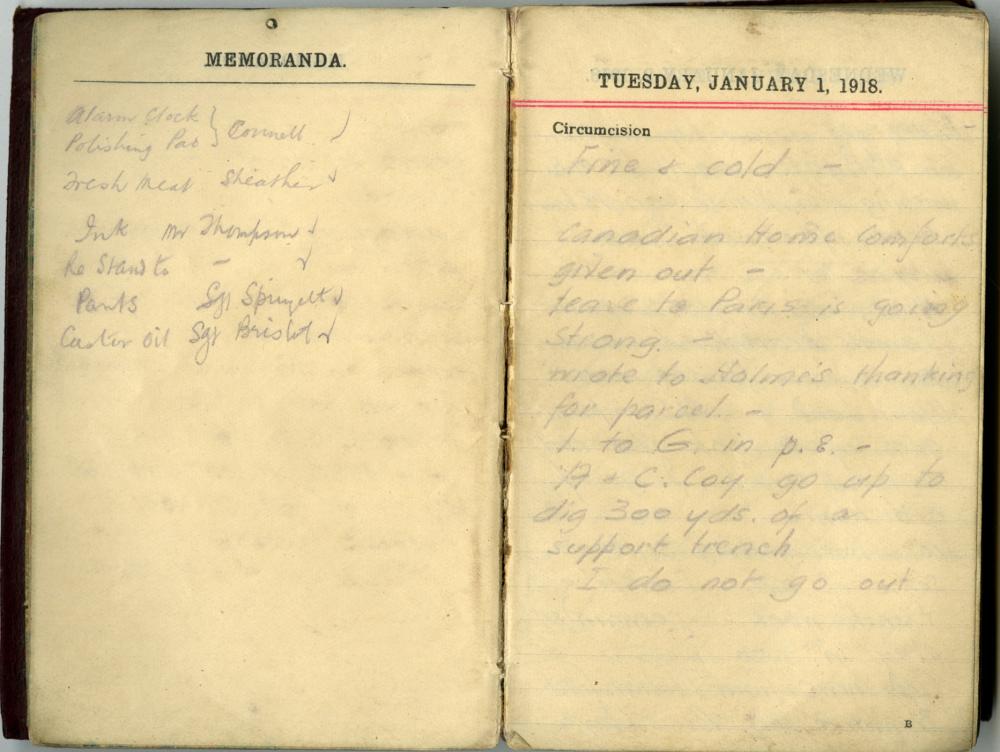 MEMORANDA.
Alarm Clock } Connell
Polishing Pad
Fresh meat Sheather
Ink Mr Thompson
Re Stand to -
Pants Sgt
Castor oil Sgt Bristol
TUESDAY, JANUARY 1, 1918.
Circumcision
Fine & cold -
Canadian Home Comforts
given out -
leave to Paris is going
strong. -
wrote to Holmes thanking
for parcel. -
1. to G. in p. 8. -
A & C. Coy go up to
dig 300 yds. of a
support trench
I do not go out
B